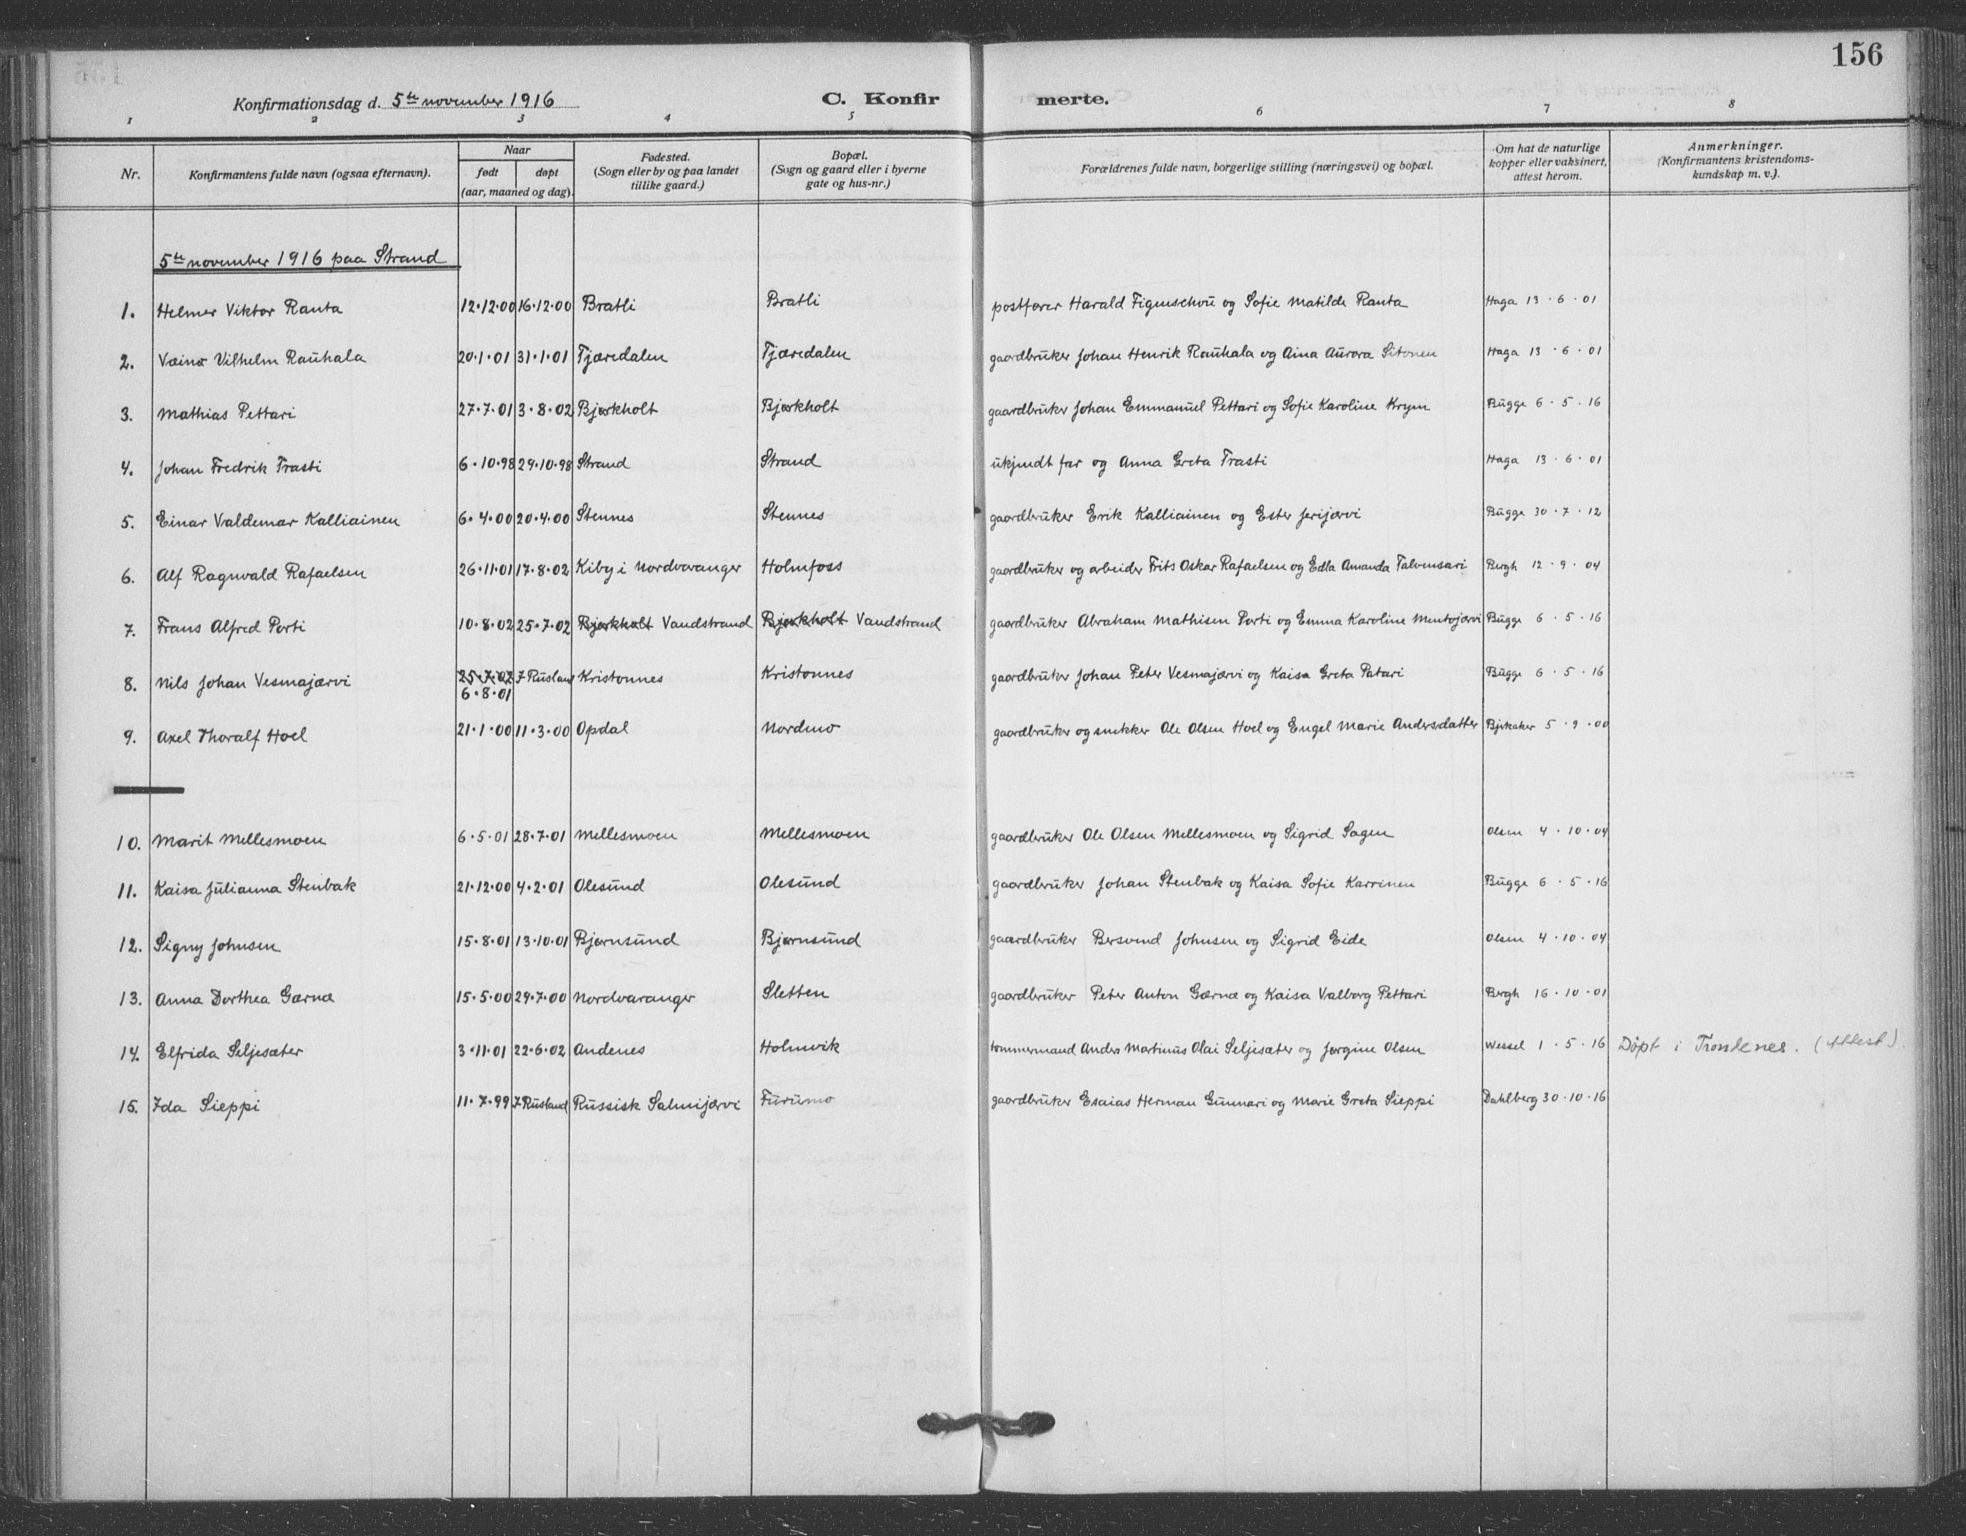 156
Konfirmationsdag d. 5te november 1916 C. Konfirmerte.
1 2 3 4 5 6 7 8
Nr. Konfirmantens fulde navn (ogsaa efternavn). Naar født døpt (aar, maaned og dag). Fødested. (Sogn eller by og paa landet tillike gaard.) Bopæl. (Sogn og gaard eller i byerne gate og hus-nr.) Forældrenes fulde navn, borgerlige stilling (næringsvei) og bopæl. Om hat de naturlige kopper eller vaksinert, attest herom. Anmerkninger. (Konfirmantens kristendoms-kundskap m. v.).
5te november 1916 paa Strand
1. Helmer Viktor Ranta 12.12.00 16.12.00 Bratli Bratli postfører Harald Figenschou og Sofie Matilde Ranta Haga 13.6.01
2. Væinø Vilhelm Rauhala 20.1.01 31.1.01 Tjæredalen Tjæredalen gaardbruker Johan Henrik Rauhala og Aina Aurora Sitonen Haga 13.6.01
3. Mathias Pettari 27.7.01 3.8.02 Bjørkholt Bjørkholt gaardbruker Johan Emmanuel Pettari og Sofie Karoline Krym Bugge 6.5.16
4. Johan Fredrik Trasti 6.10.98 29.10.98 Strand Strand ukjendt far og Anna Greta Trasti Haga 13.6.01
5. Einar Valdemar Kalliainen 6.4.00 20.4.00 Stennes Stennes gaardbruker Erik Kalliainen og Ester Jerijærvi Bugge 30.7.12
6. Alf Ragnvald Rafaelsen 26.11.01 17.8.02 Kiby i Nordvaranger Holmfoss gaardbruker og arbeider Frits Oskar Rafaelsen og Edla Amanda Talvensari Bergh 12.9.04
7. Frans Alfred Porti 10.8.02 25.7.02 Bjørkholt Vandstrand Bjørkholt Vandstrand gaardbruker Abraham Mathisen Porti og Emma Karoline Mentojærvi Bugge 6.5.16
8. Nils Johan Vesmajærvi 25.7.02 6.8.01 I Rusland Kristonnes Kristonnes gaardbruker Johan Peter Vesmajærvi og Kaisa Greta Patari Bugge 6.5.16
9. Axel Thoralf Hoel 21.1.00 11.3.00 Opdal Nordmo gaardbruker og snekker Ole Olsen Hoel og Engel Marie Andersdatter Bjrkaker 5.9.00
10. Marit Mellesmoen 6.5.01 28.7.01 Mellesmoen Mellesmoen gaardbruker Ole Olsen Mellesmoen og Sigrid Sagen Olsen 4.10.04
11. Kaisa Julianna Stenbak 21.12.00 4.2.01 Olesund Olesund gaardbruker Johan Stenbak og Kaisa Sofie Karrinen Bugge 6.5.16
12. Signy Johnsen 15.8.01 13.10.01 Bjørnsund Bjørnsund gaardbruker Bersvend Johnsen og Sigrid Eide Olsen 4.10.04
13. Anna Dorthea Gærnæ 15.5.00 29.7.00 Nordvaranger Sletten gaardbruker Peter Anton Gærnæ og Kaisa Valborg Pettari Bergh 16.10.01
14. Elfrida Seljesæter 3.11.01 22.6.02 Andenes Holmvik tømmermand Anders Martinus Olai Seljesæter og Jørgine Olsen Wessel 1.5.16 Døpt i Trondenes. (Attest).
15. Ida Sieppi 11.7.99 I Rusland Russisk Salmijærvi Furumo gaardbruker Esaias Herman Gunnari og Marie Greta Sieppi Dahlberg 30.10.16